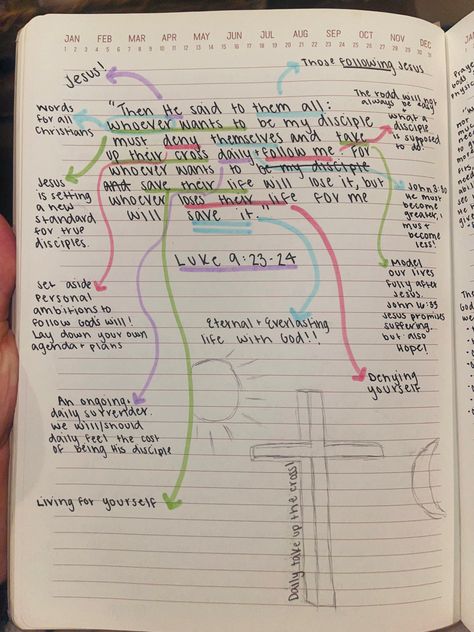 JAN FEB MAR APR MAY JUN JUL AUG SEP OCT NOV DEC
1 2 3 4 5 6 7 8 9 10 11 12 13 14 15 16 17 18 19 20 21 22 23 24 25 26 27 28 29 30 31
Jesus!
Those following Jesus
words
for all
Christians
"Then He said to them all:
whoever wants to be my disciple
must deny themselves and take
up their cross daily + follow me. For
whoever wants to be my disciple
and save their life will lose it, but
whoever loses their life for me
will save it."
Luke 9:23-24
The road will not
always be easy
what a
disciple
is supposed
to do!
Jesus
is setting
a new
standard
for true
disciples.
John 3:30
He must
become
greater, I
must
become
less!
Set aside
personal
ambitions to
follow Gods will!
Lay down your own
agenda + plans
Model
our lives
fully after
Jesus.
John 16:33
Jesus promises
suffering
but also
Hope!
Eternal + Everlasting
life with God!!
Denying
yourself
An ongoing,
daily surrender.
we will/should
daily feel the cost
of being His disciple
Living for yourself
Daily take up the cross!